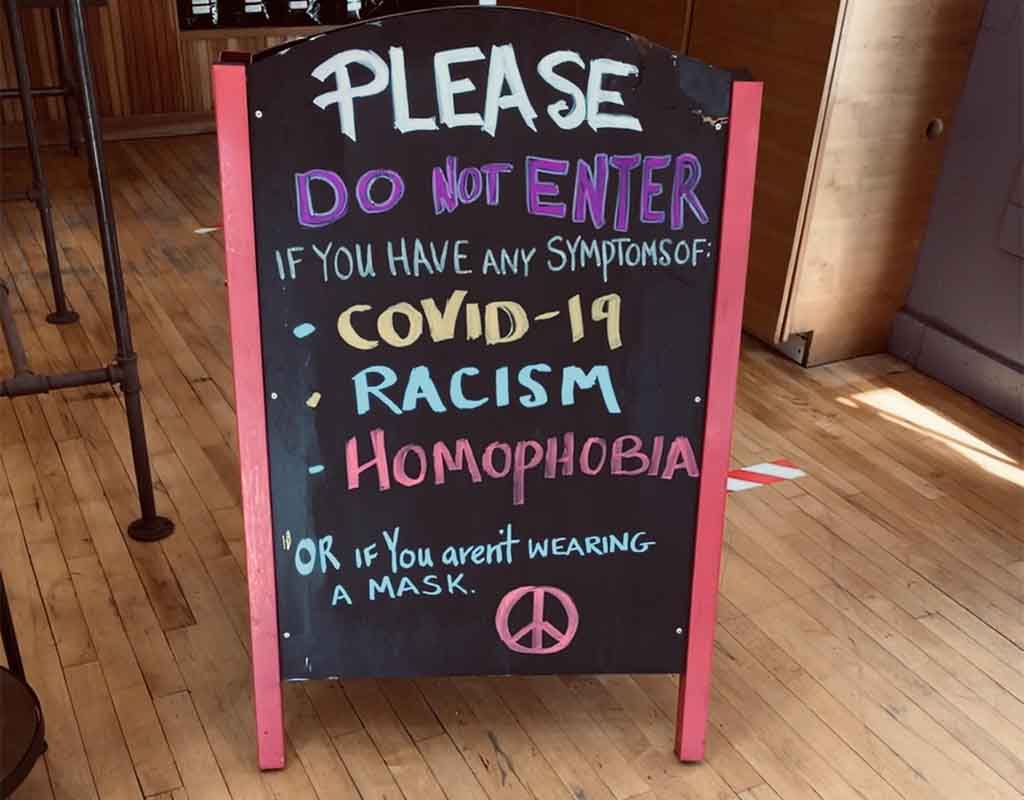 PLEASE
DO NOT ENTER
IF YOU HAVE ANY SYMPTOMS OF:
• COVID-19
• RACISM
- HOMOPHOBIA
OR IF You aren't WEARING
A MASK.